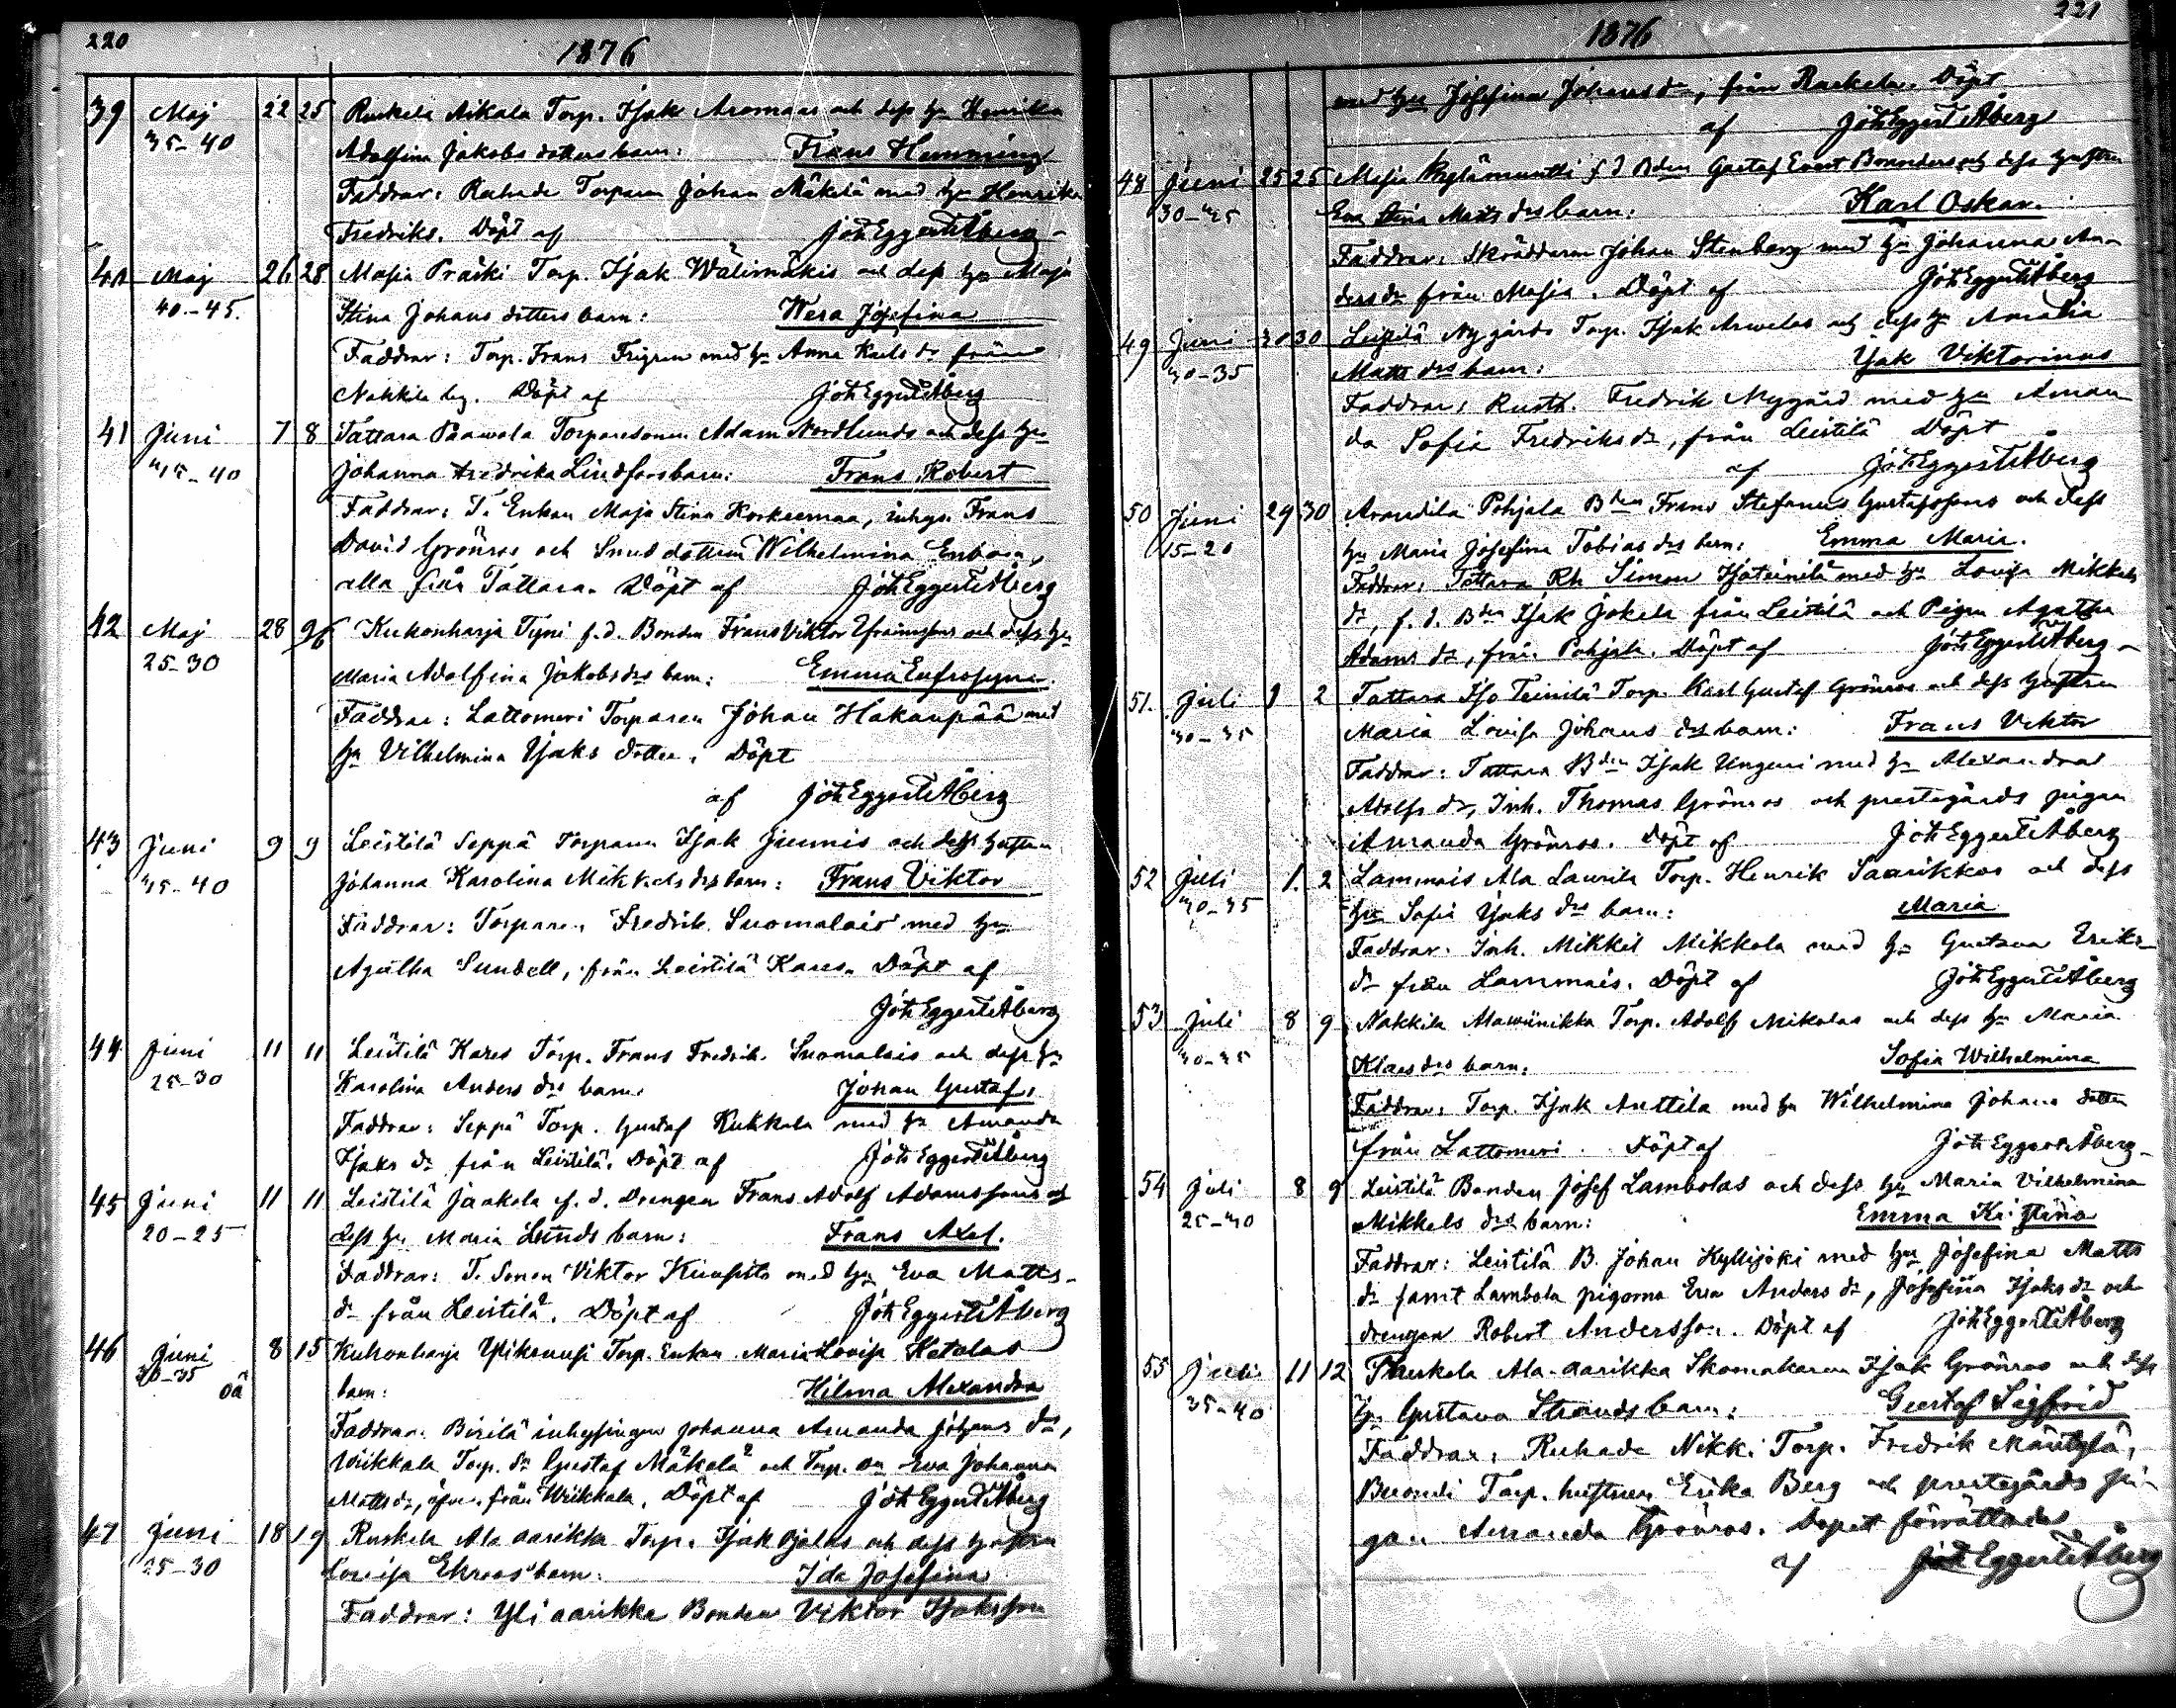 220
1876
39 Maj 22 25 Ruskela Aikala Torp. Isak Aromaas och dess hu Henrika
35-40 Adolfina Jakobs dotters barn: Frans Hemming
Faddrar: Ruhade Torparen Johan Mäkelä med hu Henrika
Fredriks. Döpt af Joh Eggert Åberg
40 Maj 26 28 Masia Präiki Torp. Isak Wälimäkis och dess hu Maja
40-45. Stina Johans dotters barn: Wera Josefina
Faddrar: Torp. Frans Frigren med hu Anna Karls dr från
Nakkila by. Döpt af Joh Eggert Åberg
41 Juni 7 8 Tattara Paawola Torparesonen Adam Nordlunds och dess hu
40 Johanna Fredrika Lindfors barn: Frans Robert
Faddrar: T. Enkan Maja Stina Korkeemaa, inhys. Frans
David Grönros och Smed dottern Wilhelmina Enbom,
alla från Tattara. Döpt af Joh Eggert Åberg
42 Maj 28 Kukonharja Tyni f.d. Bonden Frans Viktor Efraimssons och dess hu
25-30 Maria Adolfina Jakobs drs barn: Emma Eufrosyne.
Faddrar: Lattomeri Torparen Johan Hakanpää med
hu Vilhelmina Isaks dotter. Döpt
af Joh Eggert Åberg
43 Juni 9 9 Leistilä Seppä Torparen Isak Junnis och dess hustru
35-40 Johanna Karolina Mikkels drs barn: Frans Viktor
Faddrar: Torparen Fredrik Suomalais med hu
Agatha Sundell, från Leistilä Kares. Döpt af
Joh Eggert Åberg
44 Juni 11 11 Leistilä Kares Torp. Frans Fredrik Suomalais och dess hu
25-30 Karolina Anders drs barn: Johan Gustaf.
Faddrar: Seppä Torp. Gustaf Kukkola med hu Amanda
Isaks dr från Leistilä. Döpt af Joh Eggert Åberg
45 Juni 11 11 Leistilä Jaakola f.d. Drengen Frans Adolf Adamssons och
20-25 dess hu Maria Lunds barn: Frans Axel.
Faddrar: T. Sonen Viktor Kuusisto med hu Eva Matts-
dr från Leistilä. Döpt af Joh Eggert Åberg
46 Juni 8 15 Kukonharja Torp. Enkan Maria Lovisa Ketolas
oä barn: Hilma Alexandra
Faddrar: inhysingen Johanna Amanda Johans dr,
Wiikkala Torp. Gustaf Mäkelä och Torp. Eva Johanna
Matts dr, från Wiikkala. Döpt af Joh Eggert Åberg
47 Juni 18 19 Ruskela Ala aarikka Torp. Isak Ojalas och dess hustru
25-30 Lovisa Ekroos barn: Ida Josefina
Faddrar: Yli aarikka Bonden Viktor Isaksson
221
1876
med hu Josefina Johans dr, från Ruskela. Döpt
af Joh Eggert Åberg
48 Juni 25 25 Masia f d Bden Gustaf Evert och dess hustru
Eva Stina Matts drs barn: Karl Oskar.
Faddrar: Skräddaren Johan Stenberg med hu Johanna An-
ders dr från Masia. Döpt af Joh Eggert Åberg
49 Juni 30 30 Leistilä Nygårds Torp. Isak Arwelas och dess hu Amalia
30-35 Matts drs barn: Isak Viktorinus
Faddrar: Rusth. Fredrik Nygård med hu Aman-
da Sofia Fredriks dr, från Leistilä Döpt
af Joh Eggert Åberg
50 Juni 29 30 Arandila Pohjala Bden Frans Stefanus Gustafssons och dess
15-20 hu Maria Josefina Tobias drs barn: Emma Maria.
Faddrar: Tattara Rh Simon Isoteinilä med hu Lovisa Mikkels
dr, f.d. Bden Isak Jokela från Leistilä och Pigan Agatha
Adams dr, från Pohjala. Döpt af Joh Eggert Åberg
51. Juli 1 2 Tattara Iso Teinilä Torp. Karl Gustaf Grönros och dess hustru
30-35 Maria Lovisa Johans drs barn: Frans Viktor
Faddrar: Tattara Bden Isak Ungeri med hu Alexandra
Adolfs dr, Inh. Thomas Grönros och prestegårds pigan
Amanda Grönros. Döpt af Joh Eggert Åberg
52 Juli 1. 2 Lammais Ala Laurila Torp. Henrik Saarikkos och dess
30-35 hu Sofia Isaks drs barn: Maria
Faddrar: Inh. Mikkel Mikkola med hu Gustava Eriks
dr från Lammais. Döpt af Joh Eggert Åberg
53 Juli 8 9 Nakkila Alawiinikka Torp. Adolf Mikolas och dess hu Maria
30-35 Klaes drs barn: Sofia Wilhelmina
Faddrar: Torp. Isak Anttila med hu Wilhelmina Johans dotter
från Lattomeri. Döpt af Joh Eggert Åberg
54 Juli 8 9 Leistilä Bonden Josef Lambolas och dess hu Maria Vilhelmina
Mikkels drs barn: Emma Kristina
Faddrar: Leistilä B. Johan Kyllijoki med hu Josefina Matts
dr samt Lambola pigorna Eva Anders dr, Josefina Isaks dr och
drengen Robert Andersson. Döpt af Joh Eggert Åberg
55 Juli 11 12 Ruskela Ala-aarikka Skomakaren Isak Grönros och dess
35-40 hu Gustava Strands barn: Gustaf Sigfrid
Faddrar: Ruhade Nikki Torp. Fredrik Mäntylä,
Torp. hustrun Erika Berg och prestegårds pi-
gan Amanda Grönros. Dopet förrättades
af Joh Eggert Åberg